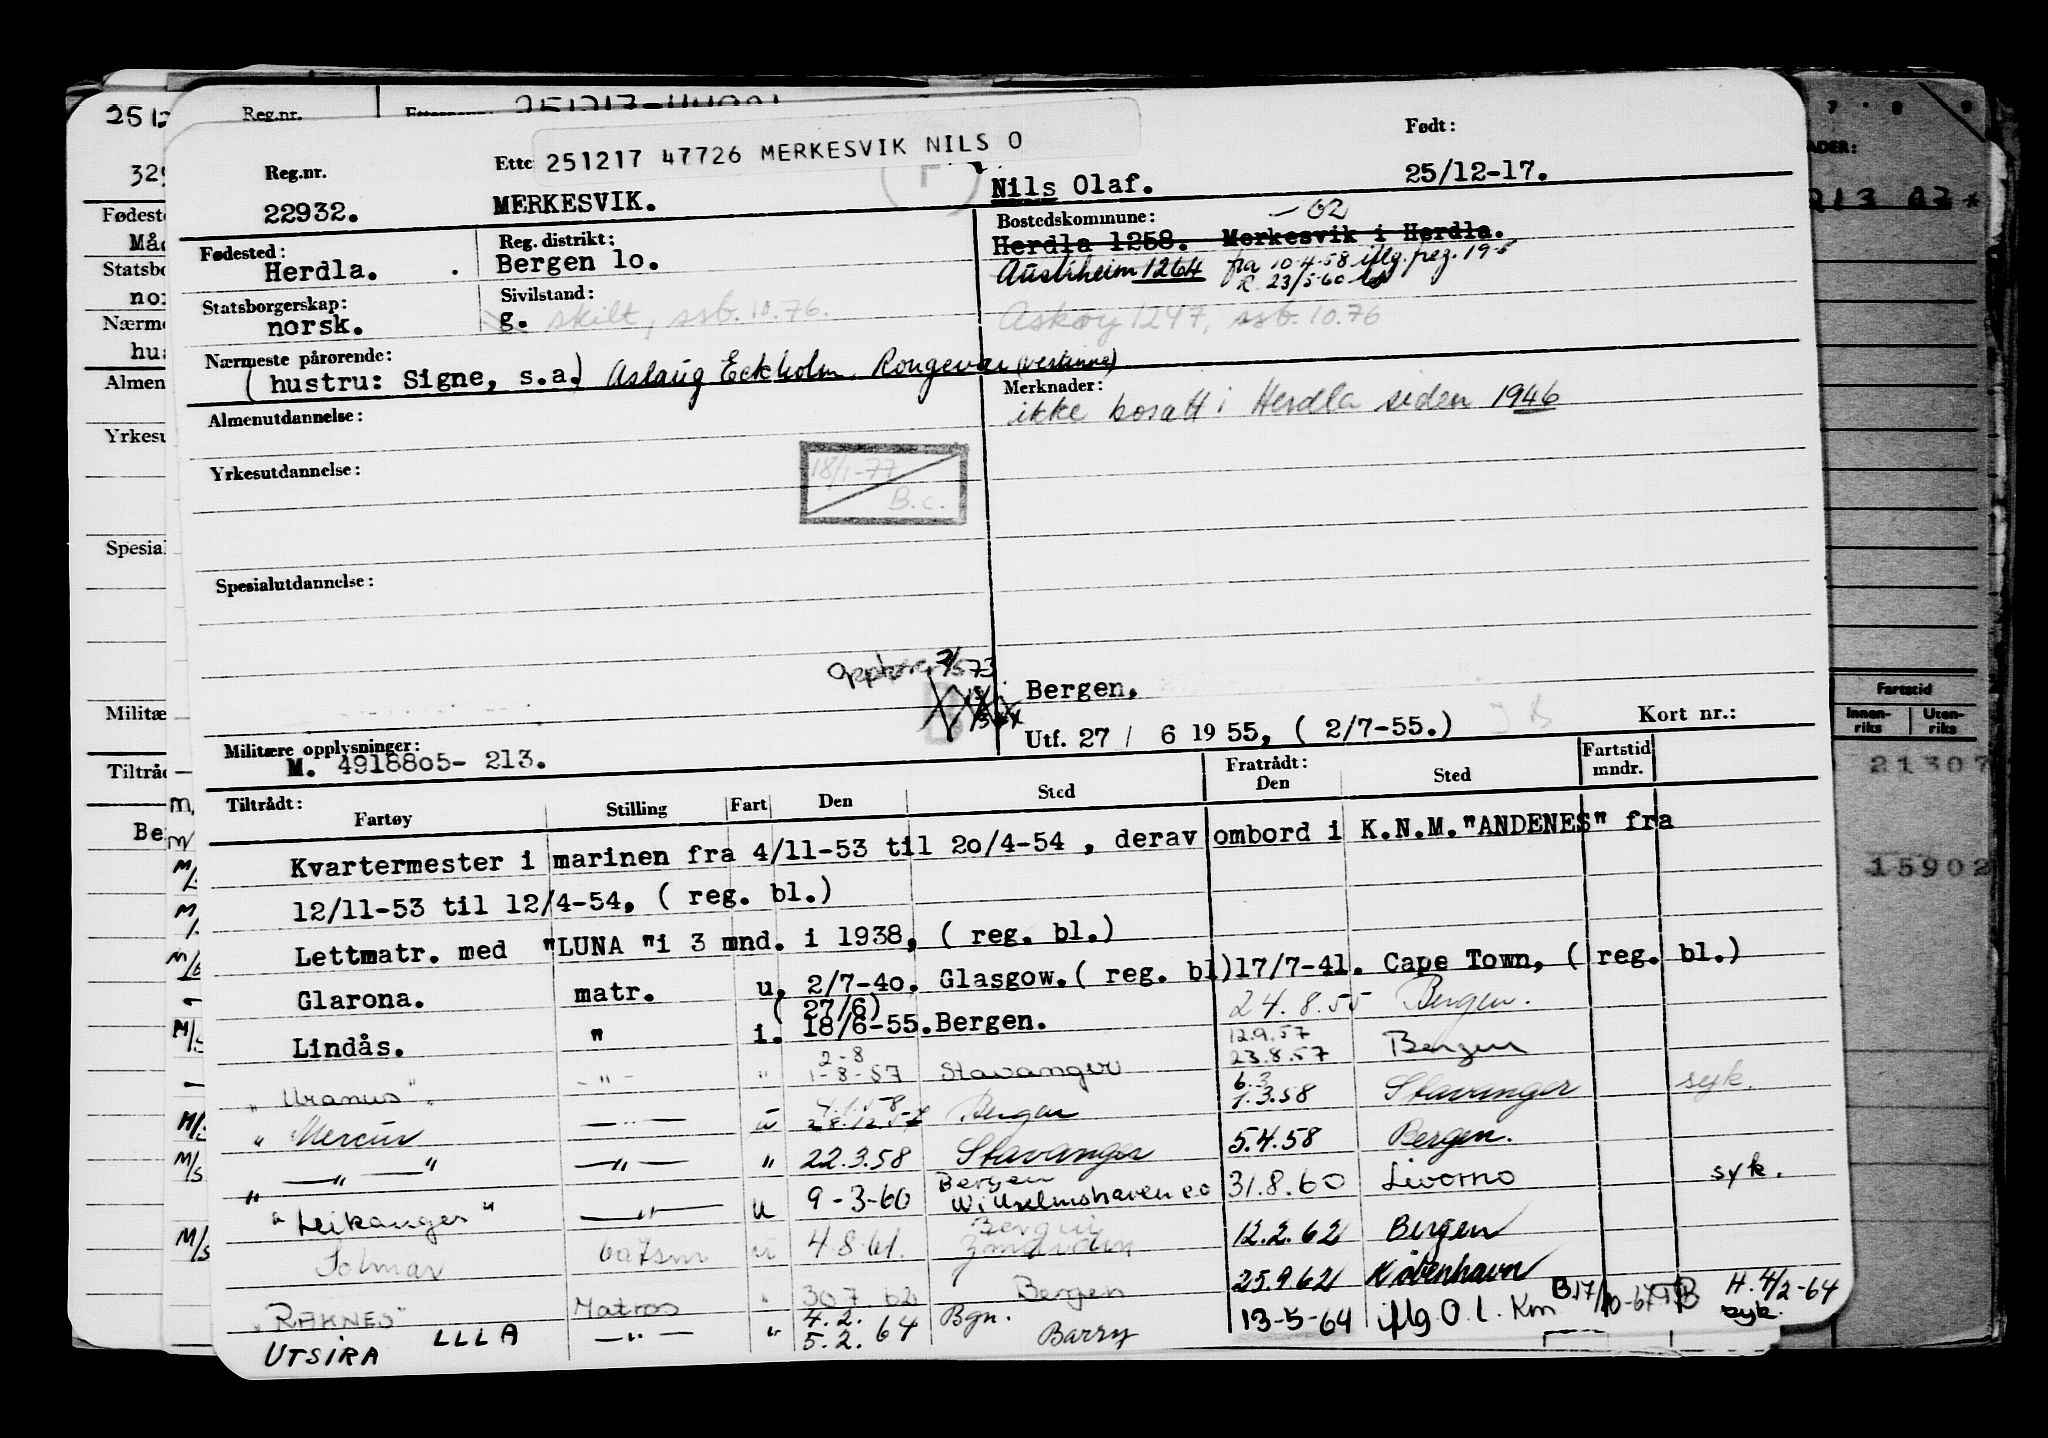 251217 47726 MERKESVIK NILS O
Reg.nr.
Født:
22932.
MERKESVIK.
Nils Olaf.
25/12-17.
Fødested:
Herdla.
Reg. distrikt:
Bergen lo.
Bostedskommune:
-02
Herdla 1258. Merkesvik i Herdla.
Austrheim 1264 fra 10-4-58 iflg. 
R 23/5-60
Statsborgerskap:
norsk.
Sivilstand:
g. skilt, ssb. 10.76.
Askøy 1247, ssb. 10.76
Nærmeste pårørende:
( hustru: Signe, s.a.) Aslaug Eckholm, Rongevær (venninne)
Merknader:
ikke bosatt i Herdla siden 1946
Almenutdannelse:
Yrkesutdannelse:
18/1-77
B.c.
Spesialutdannelse:
Bergen,
Utf. 27 / 6 19 55, ( 2/7-55.)
Kort nr.:
Militære opplysninger:
M. 4918805- 213.
Tiltrådt:
Fartøy
Stilling
Fart
Den
Sted
Fratrådt:
Den
Sted
Fartstid
mndr.
Kvartermester i marinen fra 4/11-53 til 20/4-54 , derav ombord i K.N.M."ANDENES" fra
12/11-53 til 12/4-54, ( reg. bl.)
Lettmatr. med "LUNA "i 3 mnd. i 1938, ( reg. bl.)
Glarona. matr. u, 2/7-40. Glasgow.( reg. bl)17/7-41. Cape Town, ( reg. bl.)
( 27/6)
Lindås. " i. 18/6-55.Bergen. 24.8.55 Bergen.
2-8 12.9.57
"Uranus" -"- " 1-8-57 Stavanger 23.8.57 Bergen
6.3
"Mercur -"- u 28.12.57 Bergen 1.3.58 Stavanger syk.
" — " —"— " 22.3.58 Stavanger 5.4.58 Bergen.
Bergen
"Leikanger" —"— u 9-3-60 Wilhelmshaven eo 31.8.60 Livorno syk.
Bergen
Solmar båtsm u 4.8.61. 12.2.62 Bergen
"RAKNES" Matros " 30.7.62 Bergen 25.9.62 København
UTSIRA LLLA —"— " 4.2. 64 Bgn. 13-5-64 iflg O.l. Km B.17/10-67 H.4/2-64
5.2. Barry syk.
Fartstid
Innen-
riks
Uten-
riks
21307
15902